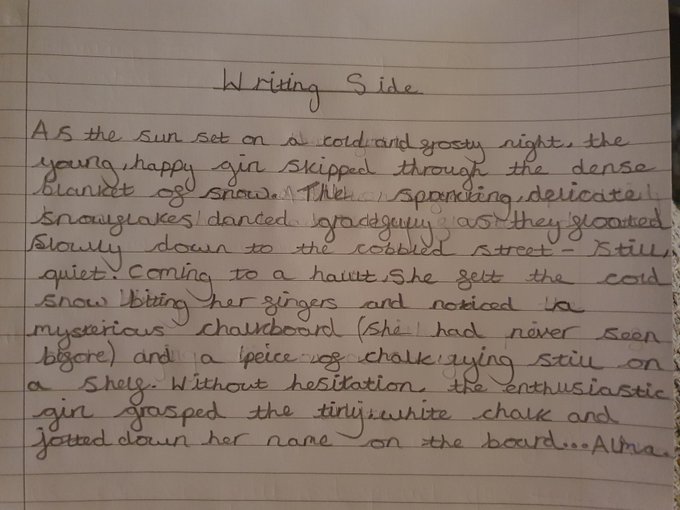 Writing Side
As the sun set on a cold and frosty night, the
young, happy girl skipped through the dense
blanket of snow. The sparkling, delicate
snowflakes danced gracefully as they floated
slowly down to the cobbled street – still,
quiet. Coming to a hault, she felt the cold
snow biting her fingers and noticed a
mysterious chalkboard (she had never seen
before) and a peice of chalk lying still on
a shelf. Without hesitation, the enthusiastic
girl grasped the tiny, white chalk and
jotted down her name on the board... Alma.